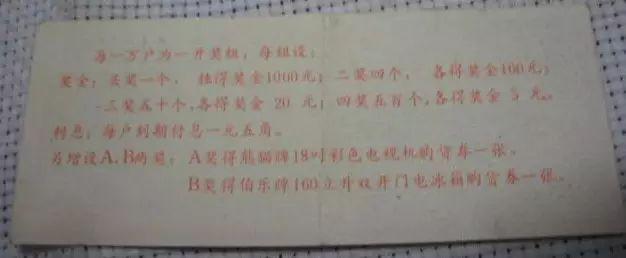 每一万户为一开奖组，每组设：
奖金：头奖一个， 独得奖金1000元；二奖四个， 各得奖金100元；
三奖五十个，各得奖金 20 元；四奖五百个，各得奖金 5 元。
利息：每户到期付息一元五角。
另增设A、B两奖： A奖得熊猫牌18吋彩色电视机购货券一张。
B奖得伯乐牌160立升双开门电冰箱购货券一张。